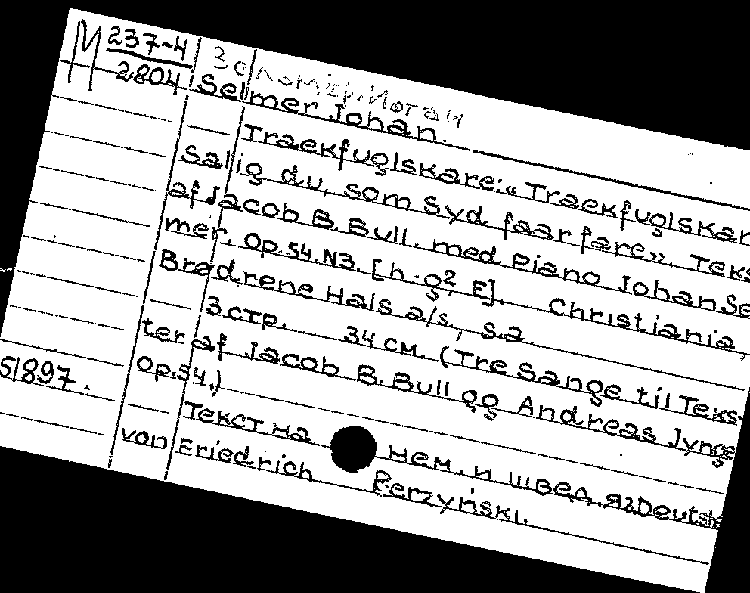 М 237-4
2804
Selmer Johan.
Traekfuglskare: « Traekfuglskar
Salig du, som Syd faar fare». Teks
af Jacob B. Bull. med Piano Johan Se
mer. Op. 54. N3. [h-g², E]. Christiania,
Brødrene Hals a/s, s.a
3 стр. 34 см. (Tre Sange til Teks-
ter af Jacob B. Bull og Andreas Jynge
Op. 54.)
51897.
Текст на нем. и швед. яз Deutshe
von Friedrich Perzyński.